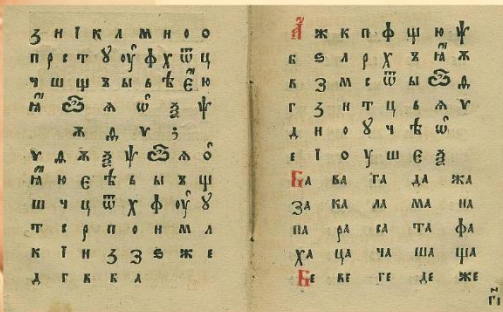 ꙁ и ї к л м н о
п р с т ꙋ оу ф х ѿ ц
ч ш щ ъ ы ь ѣ є ю
ꙗ Ѽ ѧ ѡ ѯ ѱ
ѫ ѳ ѵ ;
ѵ ѳ ѫ ѯ ѱ Ѽ ѧ ѡ
ꙗ ю є ѣ ь ы ъ щ
ш ч ц ѿ х ф оу ꙋ
т с р п о н м л
к ї и ꙁ з ѕ ж е
д г в б а
А ж к п ф щ ю ѱ
б ѕ л р х ъ ꙗ ѫ
в з м с ѿ ы Ѽ ѳ
г ꙁ н т ц ь ѧ ѵ
д и о ꙋ ч ѣ ѡ
е ї о у ш є ѯ
Ба ва га да жа
за ка ла ма на
па ра са та фа
ха ца ча ша ща
Бе ве ге де же
г҃і